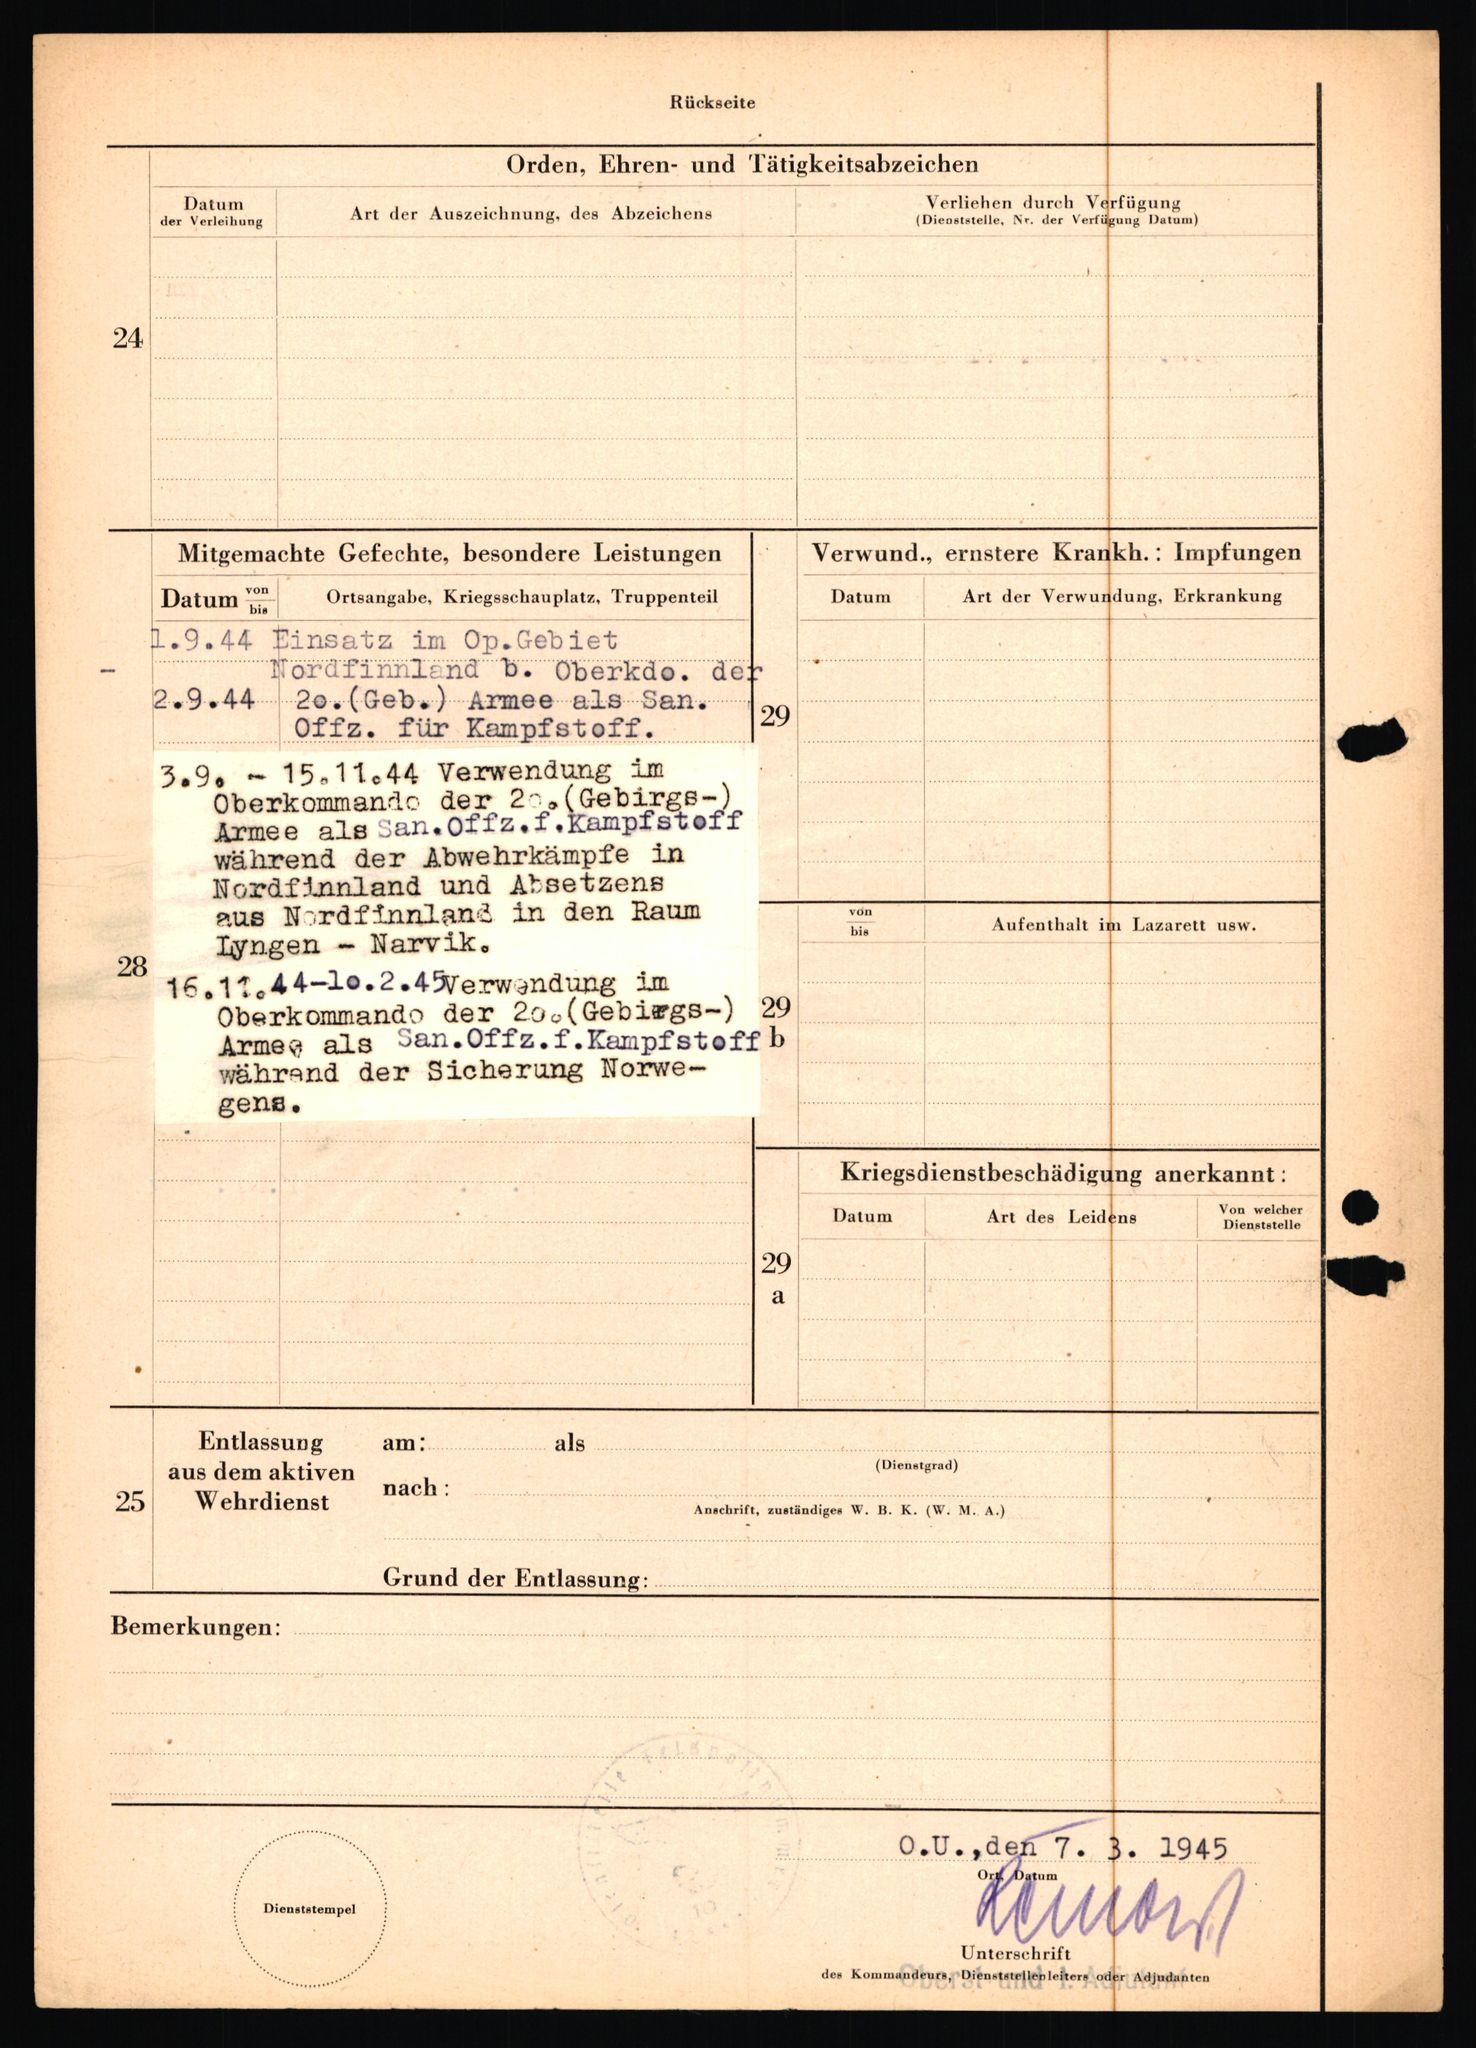 Rückseite
Orden, Ehren- und Tätigkeitsabzeichen
Datum
der Verleihung
Art der Auszeichnung, des Abzeichens
Verliehen durch Verfügung
(Dienststelle, Nr. der Verfügung Datum)
24
Mitgemachte Gefechte, besondere Leistungen
Datum von
bis
Ortsangabe, Kriegsschauplatz, Truppenteil
1.9.44 Einsatz im Op.Gebiet
- Nordfinnland b. Oberkdo. der
2.9.44 2o.(Geb.) Armee als San.
Offz. für Kampfstoff.
3.9. - 15.11.44 Verwendung im
Oberkommando der 2o.(Gebirgs-)
Armee als San.Offz.f.Kampfstoff
während der Abwehrkämpfe in
Nordfinnland und Absetzens
aus Nordfinnland in den Raum
Lyngen - Narvik.
28
16.11.44-1o.2.45 Verwendung im
Oberkommando der 2o.(Gebirgs-)
Armee als San.Offz.f.Kampfstoff
während der Sicherung Norwe-
gens.
Verwund., ernstere Krankh.: Impfungen
Datum
Art der Verwundung, Erkrankung
29
von
bis
Aufenthalt im Lazarett usw.
29
b
Kriegsdienstbeschädigung anerkannt:
Datum
Art des Leidens
Von welcher
Dienststelle
29
a
25
Entlassung
aus dem aktiven
Wehrdienst
am: als
(Dienstgrad)
nach:
Anschrift, zuständiges W. B. K. (W. M. A.)
Grund der Entlassung:
Bemerkungen:
O.U.,den 7. 3. 1945
Ort, Datum
Dienststempel
Unterschrift
des Kommandeurs, Dienststellenleiters oder Adjudanten
Oberst und 1. Adjutant